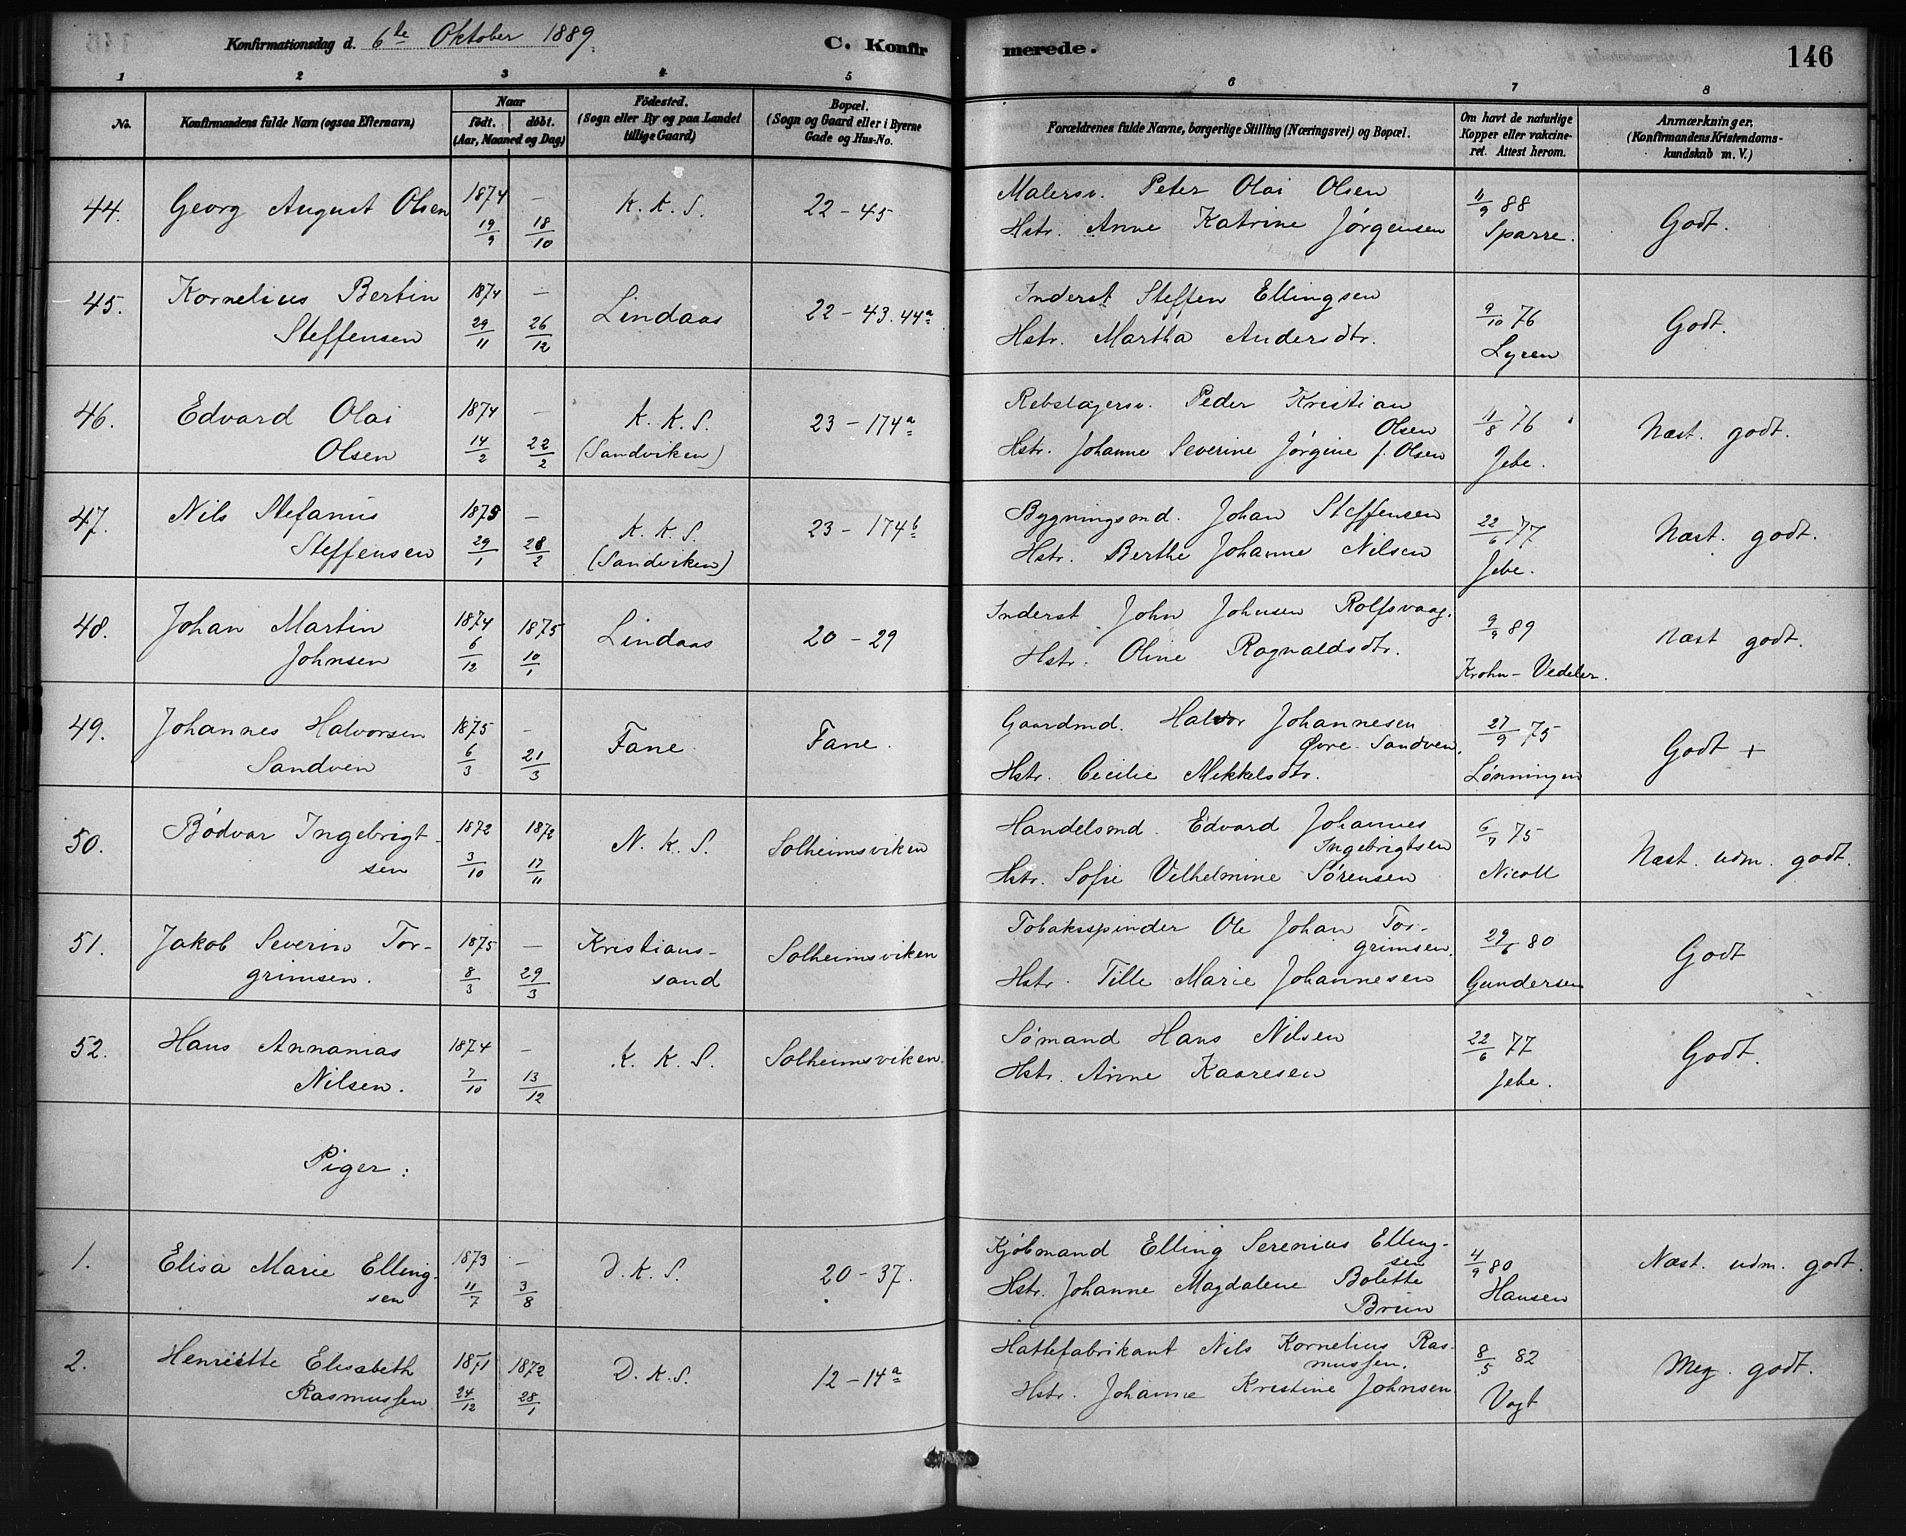 Konfirmationsdag d. 6te Oktober 1889. C. Konfirmerede. 146
1 2 3 4 5 6 7 8
No. Konfirmandens fulde Navn (ogsaa Efternavn) Naar født. døbt. (Aar, Maaned og Dag) Fødested. (Sogn eller By og paa Landet tillige Gaard) Bopæl. (Sogn og Gaard eller i Byerne Gade og Hus-No. Forældrenes fulde Navne, borgerlige Stilling (Næringsvei) og Bopæl. Om havt de naturlige Kopper eller vakcineret. Attest herom. Anmærkninger. (Konfirmandens Kristendomskundskab m. V.)
44. Georg August Olsen 1874 19/9 — 18/10 K. K. S. 22 – 45 Malersv. Peter Olai Olsen 11/9 88 Godt.
Hstr. Anne Katrine Jørgensen Sparre.
45. Kornelius Bertin 1874 — Lindaas 22 – 43.44a Inderst Steffen Ellingsen 9/10 76 Godt.
Steffensen 29/11 26/12 Hstr. Martha Andersdtr. Lyren
46. Edvard Olai 1874 — K. K. S. 23 – 174a Rebslagersv. Peder Kristian Olsen 11/8 76 Næst. godt.
Olsen 14/2 22/2 (Sandviken) Hstr. Johanne Severine Jørgine f. Olsen Jebe.
47. Nils Stefanus 1875 — K. K. S. 23 – 174b Bygningsmd. Johan Steffensen 22/6 77 Næst. godt.
Steffensen 29/1 28/2 (Sandviken) Hstr. Berthe Johanne Nilsen Jebe.
48. Johan Martin 1874 1875 Lindaas 20 – 29 Inderst John Johnsen Rolfsvaag. 9/9 89 Næst godt.
Johnsen 6/12 10/1 Hstr. Oline Ragnaldsdtr. Krohn – Vedeler.
49. Johannes Halvorsen 1875 — Fane Fane. Gaardmd. Halvor Johannesen Øvre Sandven. 27/9 75 Godt +
Sandven 6/3 21/3 Hstr. Cecilie Mikkelsdtr. Lønningen
50. Bødvar Ingebrigt- 1872 1872 N. K. S. Solheimsviken Handelsmd. Edvard Johannes Ingebrigtsen 6/7 75 Næst. udm. godt.
sen 3/10 17/11 Hstr. Sofie Vilhelmine Sørensen Nicoll
51. Jakob Severin Tor- 1875 — Kristians- Solheimsviken Tobaksspinder Ole Johan Torgrimsen. 29/6 80 Godt
grimsen. 8/3 29/3 sand Hstr. Tille Marie Johannesen Gundersen
52. Hans Annanias 1874 — K. K. S. Solheimsviken. Sømand Hans Nilsen 22/6 77 Godt.
Nilsen. 7/10 13/12 Hstr. Anne Kaaresen Jebe.
Piger:
1. Elisa Marie Elling- 1873 — D. K. S. 20 – 37. Kjøbmand Elling Serenius Ellingsen 4/9 80 Næst. udm. godt.
sen 11/7 3/8 Hstr. Johanne Magdalene Bolette Brun Hansen
2. Henriette Elisabeth 1871 1872 D. K. S. 12 – 14a Hattefabrikant Nils Kornelius Rasmussen. 8/5 82 Meg. godt.
Rasmussen 24/12 28/1 Hstr. Johanne Kristine Johnsen. Vogt